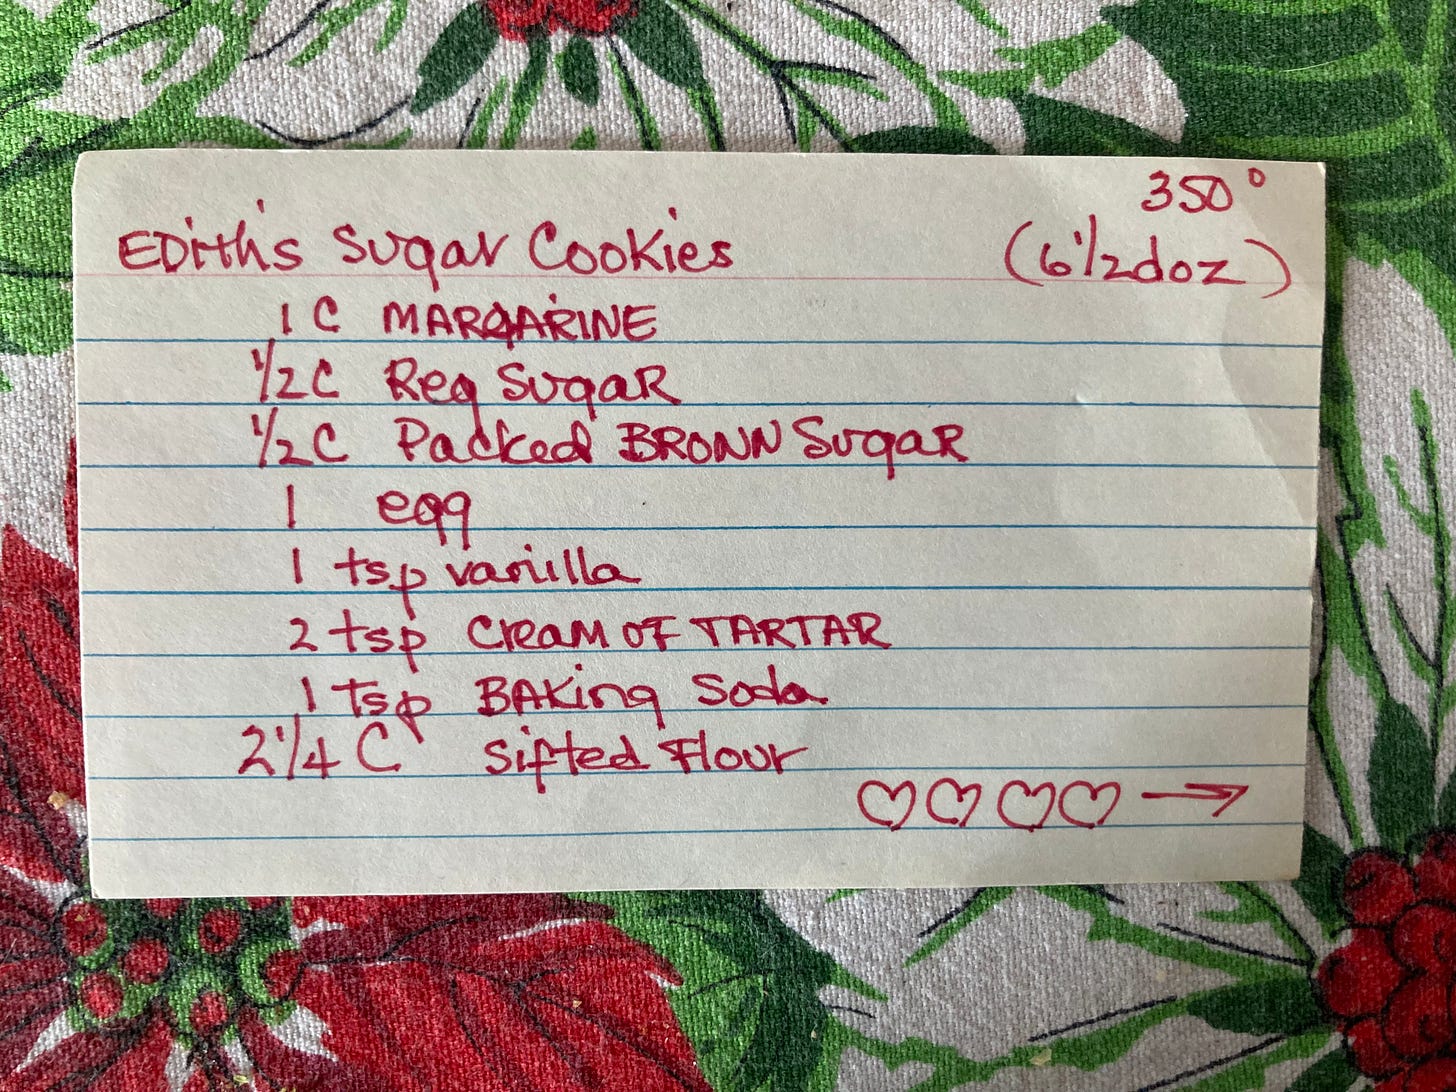 350°
Edith's Sugar Cookies (6 1/2 doz)
1 C MARGARINE
1/2 C Reg Sugar
1/2 C Packed BROWN Sugar
1 egg
1 tsp vanilla
2 tsp Cream OF TARTAR
1 tsp BAKing Soda
2 1/4 C Sifted Flour
♡♡♡♡→